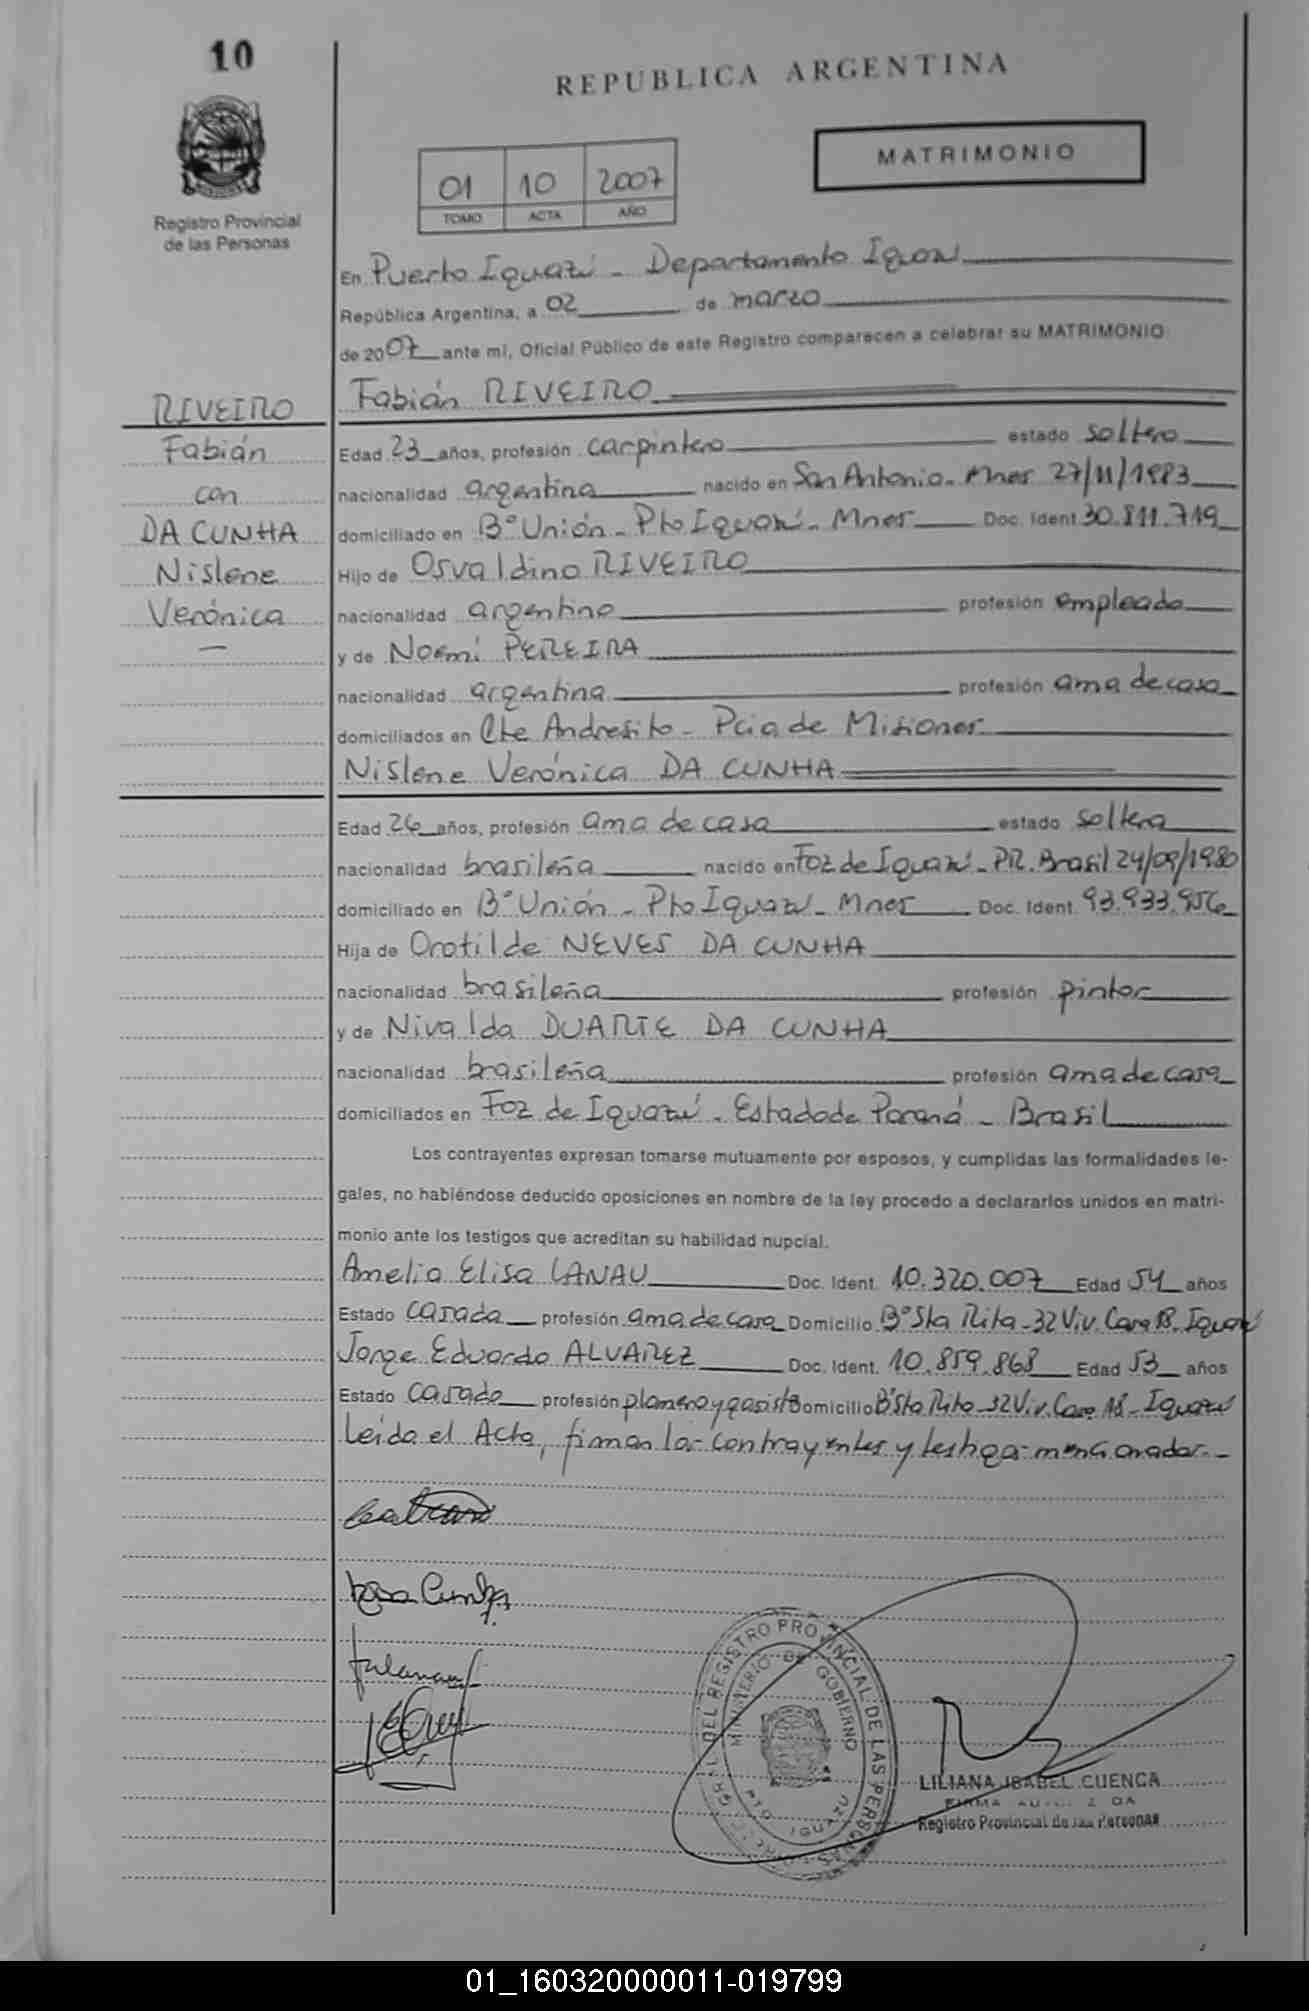 10
REPUBLICA ARGENTINA
MATRIMONIO
01 10 2007
TOMO ACTA AÑO
Registro Provincial
de las Personas
En Puerto Iguazú - Departamento Iguazú
República Argentina, a 02 de marzo
de 2007 ante mí, Oficial Público de este Registro comparecen a celebrar su MATRIMONIO
RIVEIRO
Fabián
con
DA CUNHA
Nislene
Verónica
Fabián RIVEIRO
Edad 23 años, profesión carpintero estado soltero
nacionalidad argentina nacido en San Antonio - Mnes 27/11/1983
domiciliado en Bº Unión - Pto Iguazú - Mnes Doc. Ident 30.811.719
Hijo de Osvaldino RIVEIRO
nacionalidad argentino profesión empleado
y de Noemí PEREIRA
nacionalidad argentina profesión ama de casa
domiciliados en Cte Andresito - Pcia de Misiones
Nislene Verónica DA CUNHA
Edad 26 años, profesión ama de casa estado soltera
nacionalidad brasileña nacido en Foz de Iguazú - PR. Brasil 24/09/1980
domiciliado en Bº Unión - Pto Iguazú - Mnes Doc. Ident. 93.933.956
Hija de Orotilde NEVES DA CUNHA
nacionalidad brasileña profesión pintor
y de Nivalda DUARTE DA CUNHA
nacionalidad brasileña profesión ama de casa
domiciliados en Foz de Iguazú - Estado de Paraná - Brasil
Los contrayentes expresan tomarse mutuamente por esposos, y cumplidas las formalidades le-
gales, no habiéndose deducido oposiciones en nombre de la ley procedo a declararlos unidos en matri-
monio ante los testigos que acreditan su habilidad nupcial.
Amelia Elisa LANAU Doc. Ident. 10.320.007 Edad 54 años
Estado casada profesión ama de casa Domicilio Bº Sta Rita - 32 Viv. Casa 18. Iguazú
Jorge Eduardo ALVAREZ Doc. Ident. 10.859.868 Edad 53 años
Estado casado profesión plomero y gasista Domicilio Bº Sta Rita - 32 Viv. Casa 18 - Iguazú
Leída el Acta, firman los contrayentes y testigos mencionados.-
DEL REGISTRO PROVINCIAL DE LAS PERSONAS
MINISTERIO DE GOBIERNO
PTO IGUAZU
LILIANA ISABEL CUENCA
FIRMA
Registro Provincial de las Personas
01_160320000011-019799